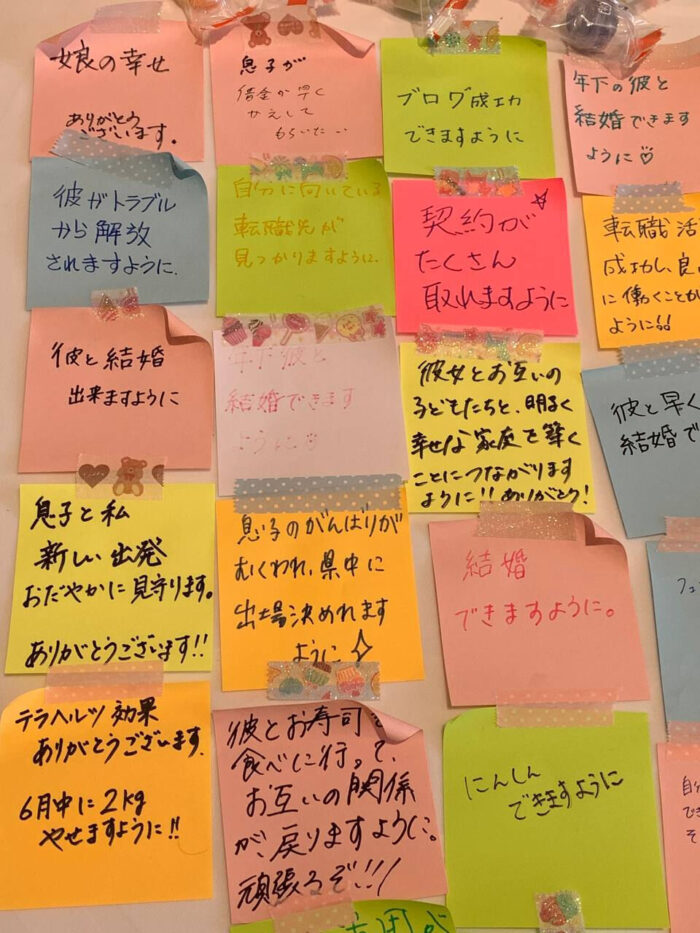 娘の幸せ
ありがとう
ございます。
息子が
借金が早く
かえして
もらいたい
ブログ成功
できますように
年下の彼と
結婚できます
ように♡
彼がトラブル
から解放
されますように.
自分に向いている
転職先が
見つかりますように.
契約が☆
たくさん
取れますように
転職活
成功し、良
に働くことが
ように!!
彼と結婚
出来ますように
年下彼と
結婚できます
ように♡
彼女とお互いの
子どもたちと、明るく
幸せな家庭を築く
ことにつながります
ように!!ありがとう!
彼と早く
結婚で
息子と私
新しい出発
おだやかに見守ります。
ありがとうございます!!
息子のがんばりが
むくわれ、県中に
出場決めれます
ように✧
結婚
できますように。
フェ
テラヘルツ効果
ありがとうございます.
6月中に2kg
やせますように!!
彼とお寿司を
食べに行って、
お互いの関係
が、戻りますように。
頑張るぞ!!!
にんしん
できますように
自分
でき
そ
活用が